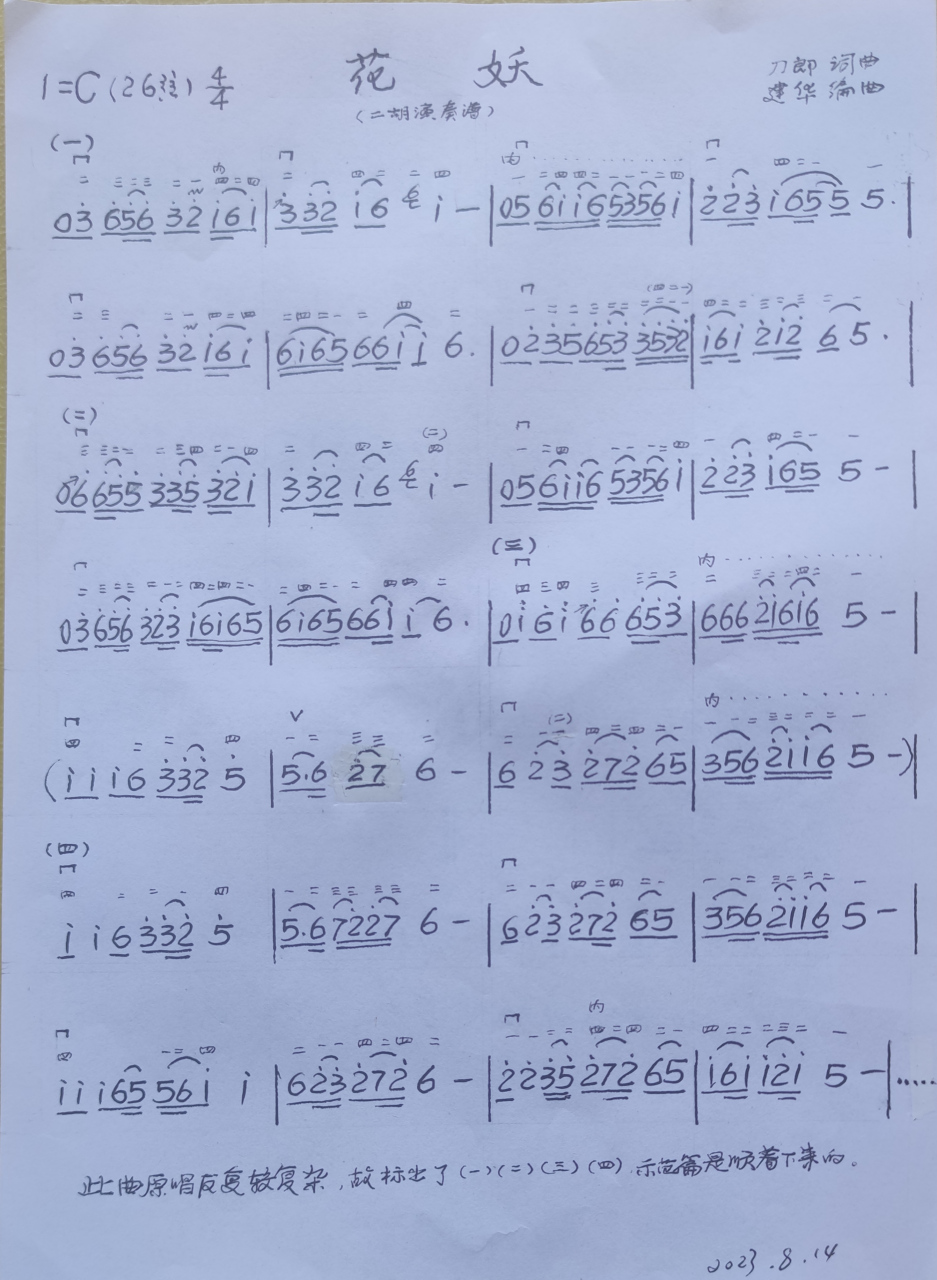 花 妖
1=C (26弦) 4/4
(二胡演奏谱)
刀郎 词曲
建华 编曲
(一)
03 656 32 161 | 332 16 1 — | 05 6116 53561 | 223 1655 5. |
03 656 32 161 | 6165 6611 6. | 0235653 3532 | 161 212 6 5. |
(二)
06 655 335 321 | 332 16 1 — | 05 6116 53561 | 223 165 5 — |
03 656 323 16165 | 6165 661 1 6. | (三) 01 61 66 653 | 666 21616 5 — |
(11 16 332 5 | 5.6 27 6 — | 6 23 272 65 | 356 2116 5 —) |
(四)
1 1 6 332 5 | 5.6 7227 6 — | 6 23 272 65 | 356 2116 5 — |
11 165 561 1 | 623 272 6 — | 2235 272 65 | 161 121 5 — | ......
此曲原唱反复较复杂,故标出了(一)(二)(三)(四),示范篇是顺着下来的。
2023.8.14